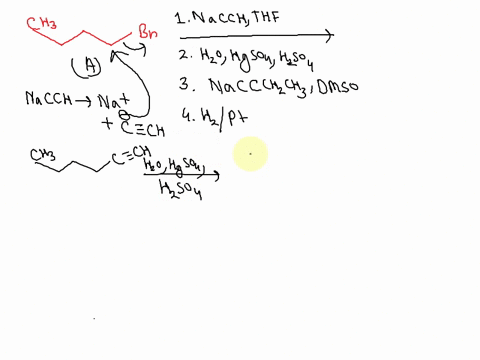 CH3
Bn
(A)
1. NaCCH, THF
2. H2O, HgSO4, H2SO4
3. NaCCCH2CH3, DMSO
4. H2/Pt
NaCCH → Na+
+ C≡CH
CH3
C≡CH
H2O, HgSO4,
H2SO4